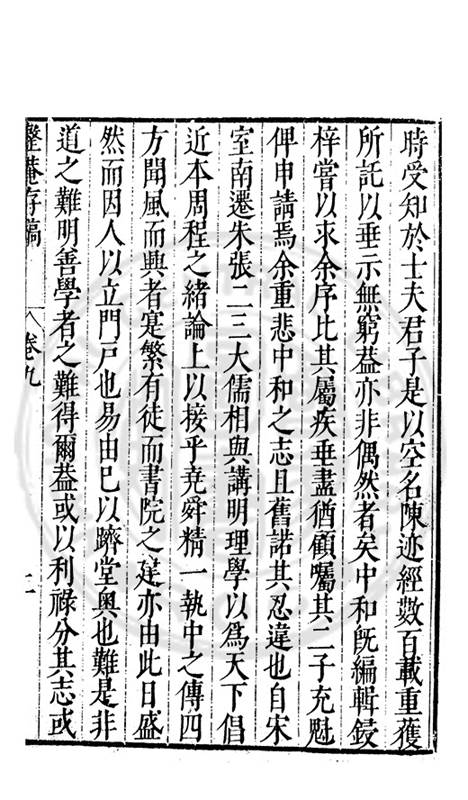 時受知於士夫君子是以空名陳迹經數百載重獲
所託以垂示無窮葢亦非偶然者矣中和旣編輯鋟
梓嘗以求余序比其屬疾垂盡猶顧囑其二子充魁
俾申請焉余重悲中和之志且舊諾其忍違也自宋
室南遷朱張二三大儒相與講明理學以爲天下倡
近本周程之緒論上以接乎堯舜精一執中之傳四
方聞風而興者寔繁有徒而書院之建亦由此日盛
然而因人以立門戸也易由巳以躋堂奧也難是非
道之難明善學者之難得爾葢或以利祿分其志或
整菴存稿
卷九